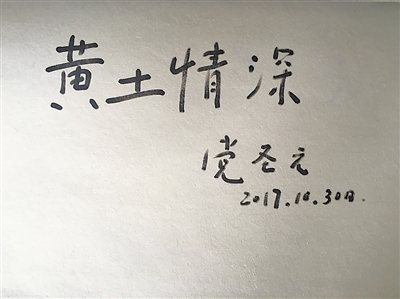 黄土情深
党圣元
2017.10.30日.